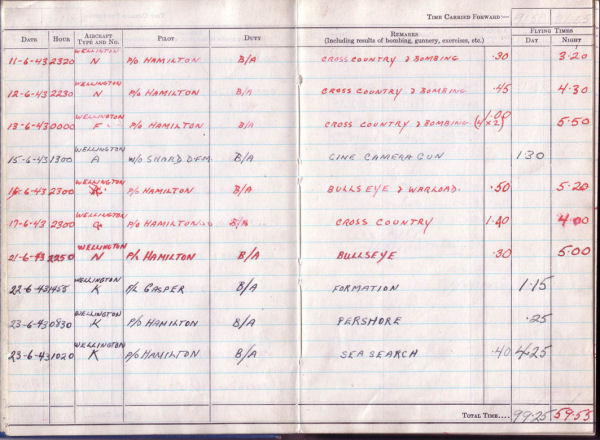 TIME CARRIED FORWARD:—
DATE HOUR AIRCRAFT TYPE AND NO. PILOT DUTY REMARKS (Including results of bombing, gunnery, exercises, etc.) FLYING TIMES DAY NIGHT
11-6-43 2320 WELLINGTON N P/O HAMILTON B/A CROSS COUNTRY & BOMBING .30 3.20
12-6-43 2230 WELLINGTON N P/O HAMILTON B/A CROSS COUNTRY & BOMBING .45 4.30
13-6-43 0000 WELLINGTON F P/O HAMILTON B/A CROSS COUNTRY & BOMBING (4x2) 1.00 5.50
15-6-43 1300 WELLINGTON A W/O B/A CINE CAMERA GUN 1.30
16-6-43 2300 WELLINGTON P/O HAMILTON B/A BULLSEYE & WARLOAD. .50 5.20
17-6-43 2300 WELLINGTON G P/O HAMILTON B/A CROSS COUNTRY 1.40 4.00
21-6-43 2250 WELLINGTON N P/O HAMILTON B/A BULLSEYE .30 5.00
22-6-43 1455 WELLINGTON K F/L GASPER B/A FORMATION 1.15
23-6-43 0830 WELLINGTON K P/O HAMILTON B/A PERSHORE .25
23-6-43 1020 WELLINGTON K P/O HAMILTON B/A SEA SEARCH .40 4.25
TOTAL TIME.... 99.25 59.55